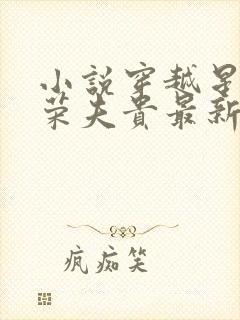 小說穿越星
荣夫貴最新
疯痴笑